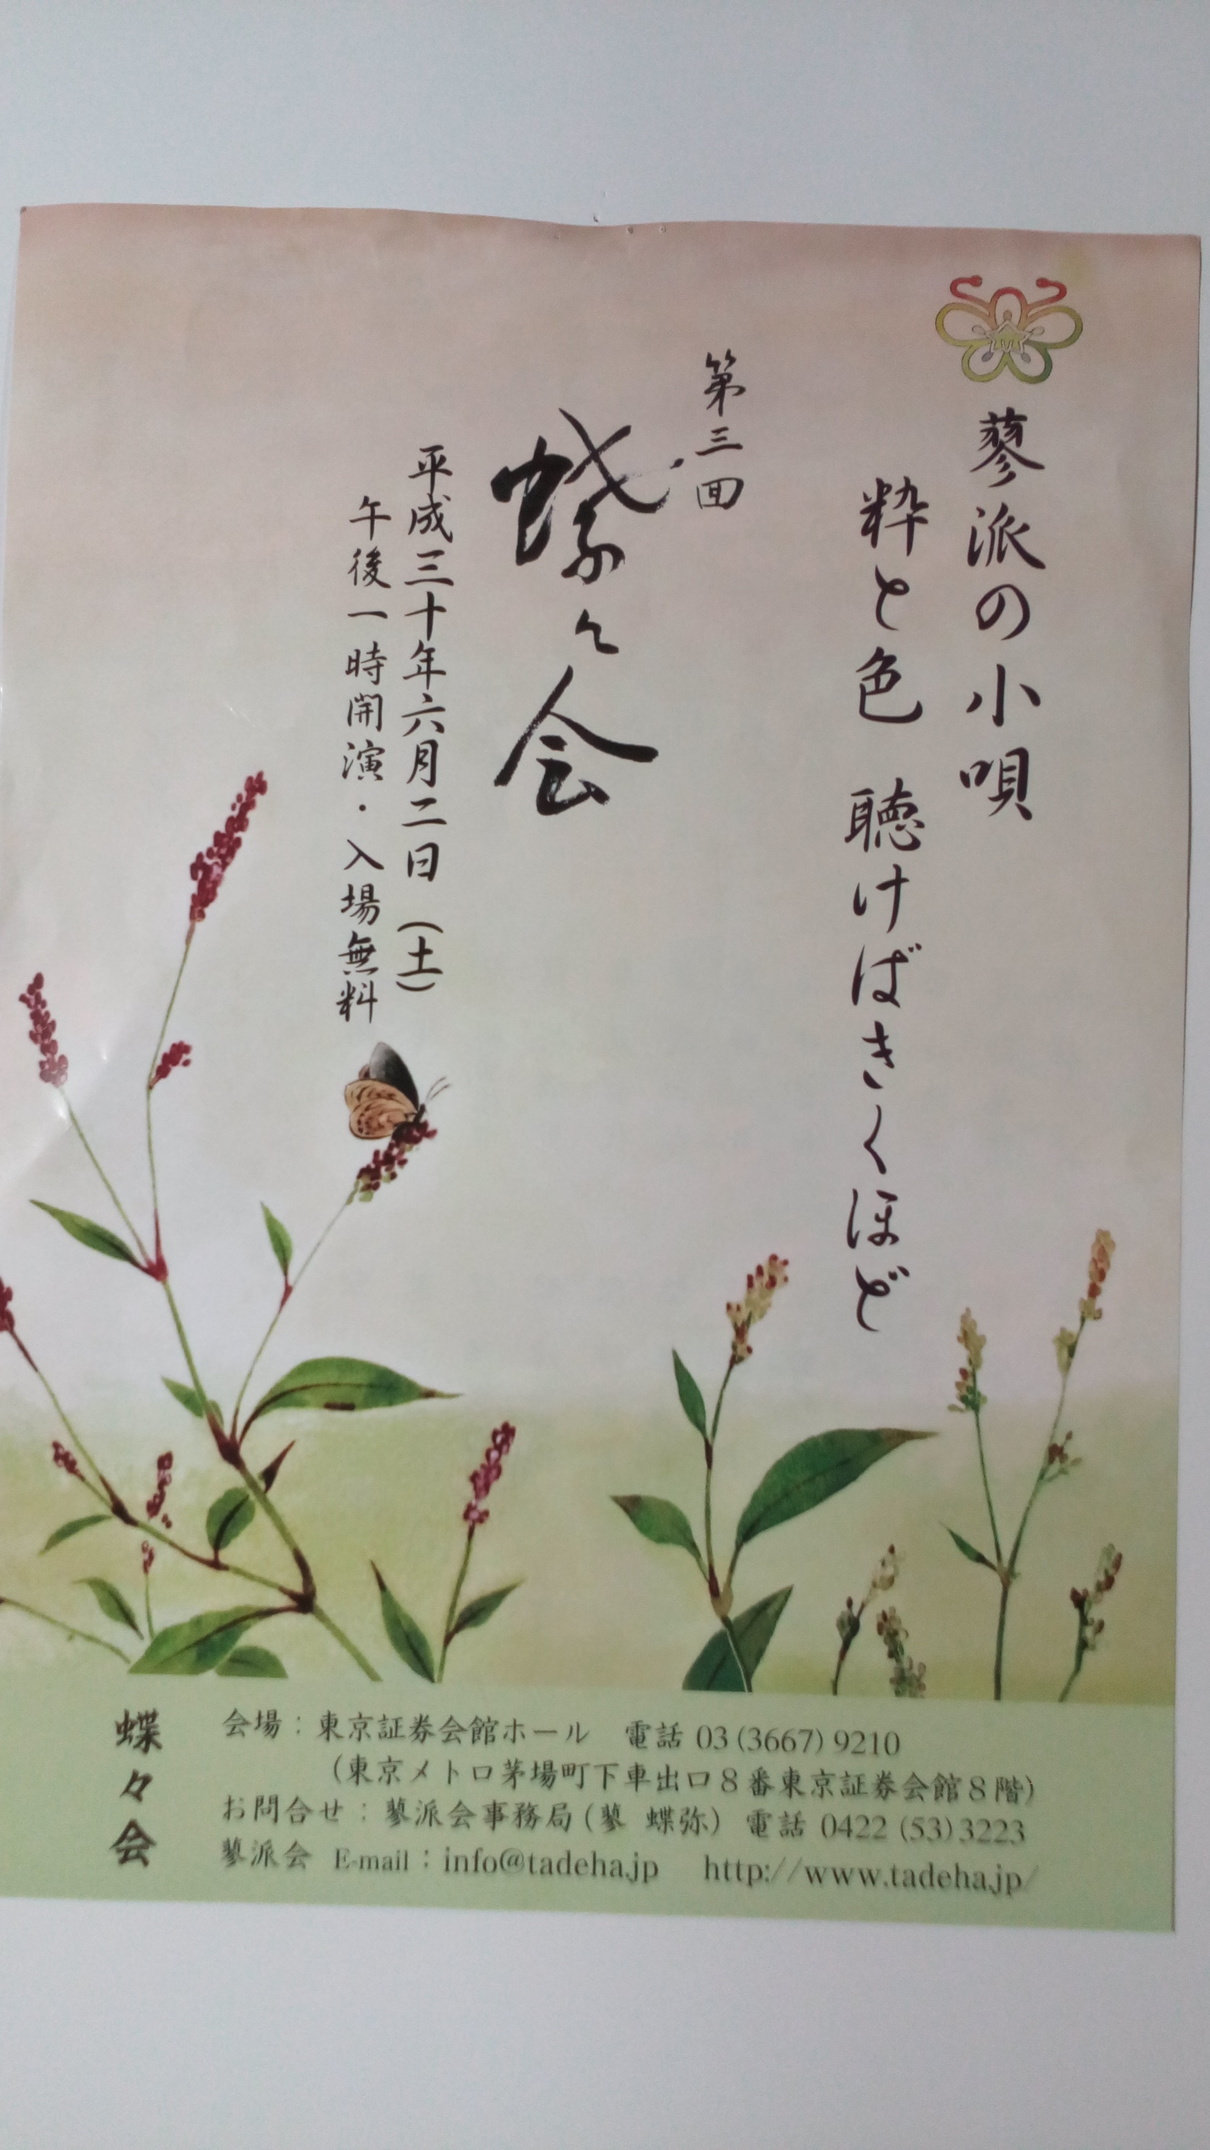 蓼派の小唄
粋と色　聴けばきくほど
第三回
蝶々会
平成三十年六月二日（土）
午後一時開演・入場無料
蝶々会
会場：東京証券会館ホール　電話 03(3667)9210
（東京メトロ茅場町下車出口８番東京証券会館８階）
お問合せ：蓼派会事務局（蓼 蝶弥）電話 0422(53)3223
蓼派会 E-mail：info@tadeha.jp　http://www.tadeha.jp/